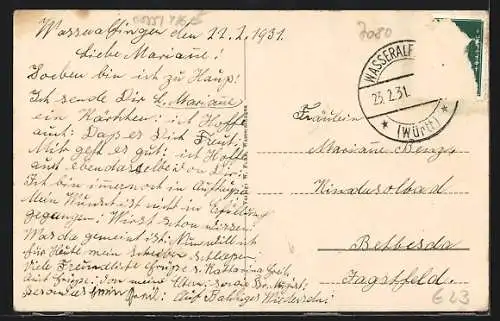 Wasseralfingen den 22.2.1931.
Liebe Mariane!
Soeben bin ich zu Haus!
Ich sende Dir l. Mariane
ein Kärtchen: ich Hoffe
Dass es Dich Freut,
Mir geht es gut: ich Hoffe
auch ebendasselbe von Dir.
Ich bin immer noch in
Mein Wunsch ist nicht in Erfüllung
gegangen: Wirst schon wissen
Was da gemeint ist: Nun will ich
für Heute mein Schreiben schliesen.
Viele Freundliche Grüsse s. Katharina
Auch Grüsse: von meine Eltern:
besonders Auf Baldiges Wiedersehn:
7080
WASSERALF
23.2.31.
* (Württ) *
Fräulein
Mariane Benz
Kindersolbad
Bethesda
Jagstfeld.
E23